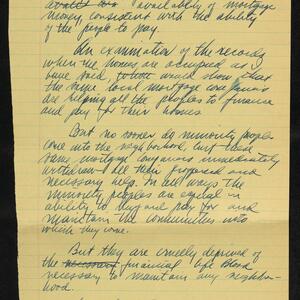 availably of mortgage
money, consistent with the ability
of the people to pay.
An examination of the records
when the homes are occupied as I
have said, would show that
the large local mortgage companies
are helping all the peoples to finance
and pay for their homes
But no sooner do minority peoples
come into the neighborhood, but these
same mortgage companies immediately
withdraw all their proposed and
necessary help. In all ways the
minority peoples are equal in
ability to buy and pay for and
maintain the communities into
which they come.
But they are cruelly deprived of
the necessary financial life blood
necessary to maintain any neighbor-
hood.